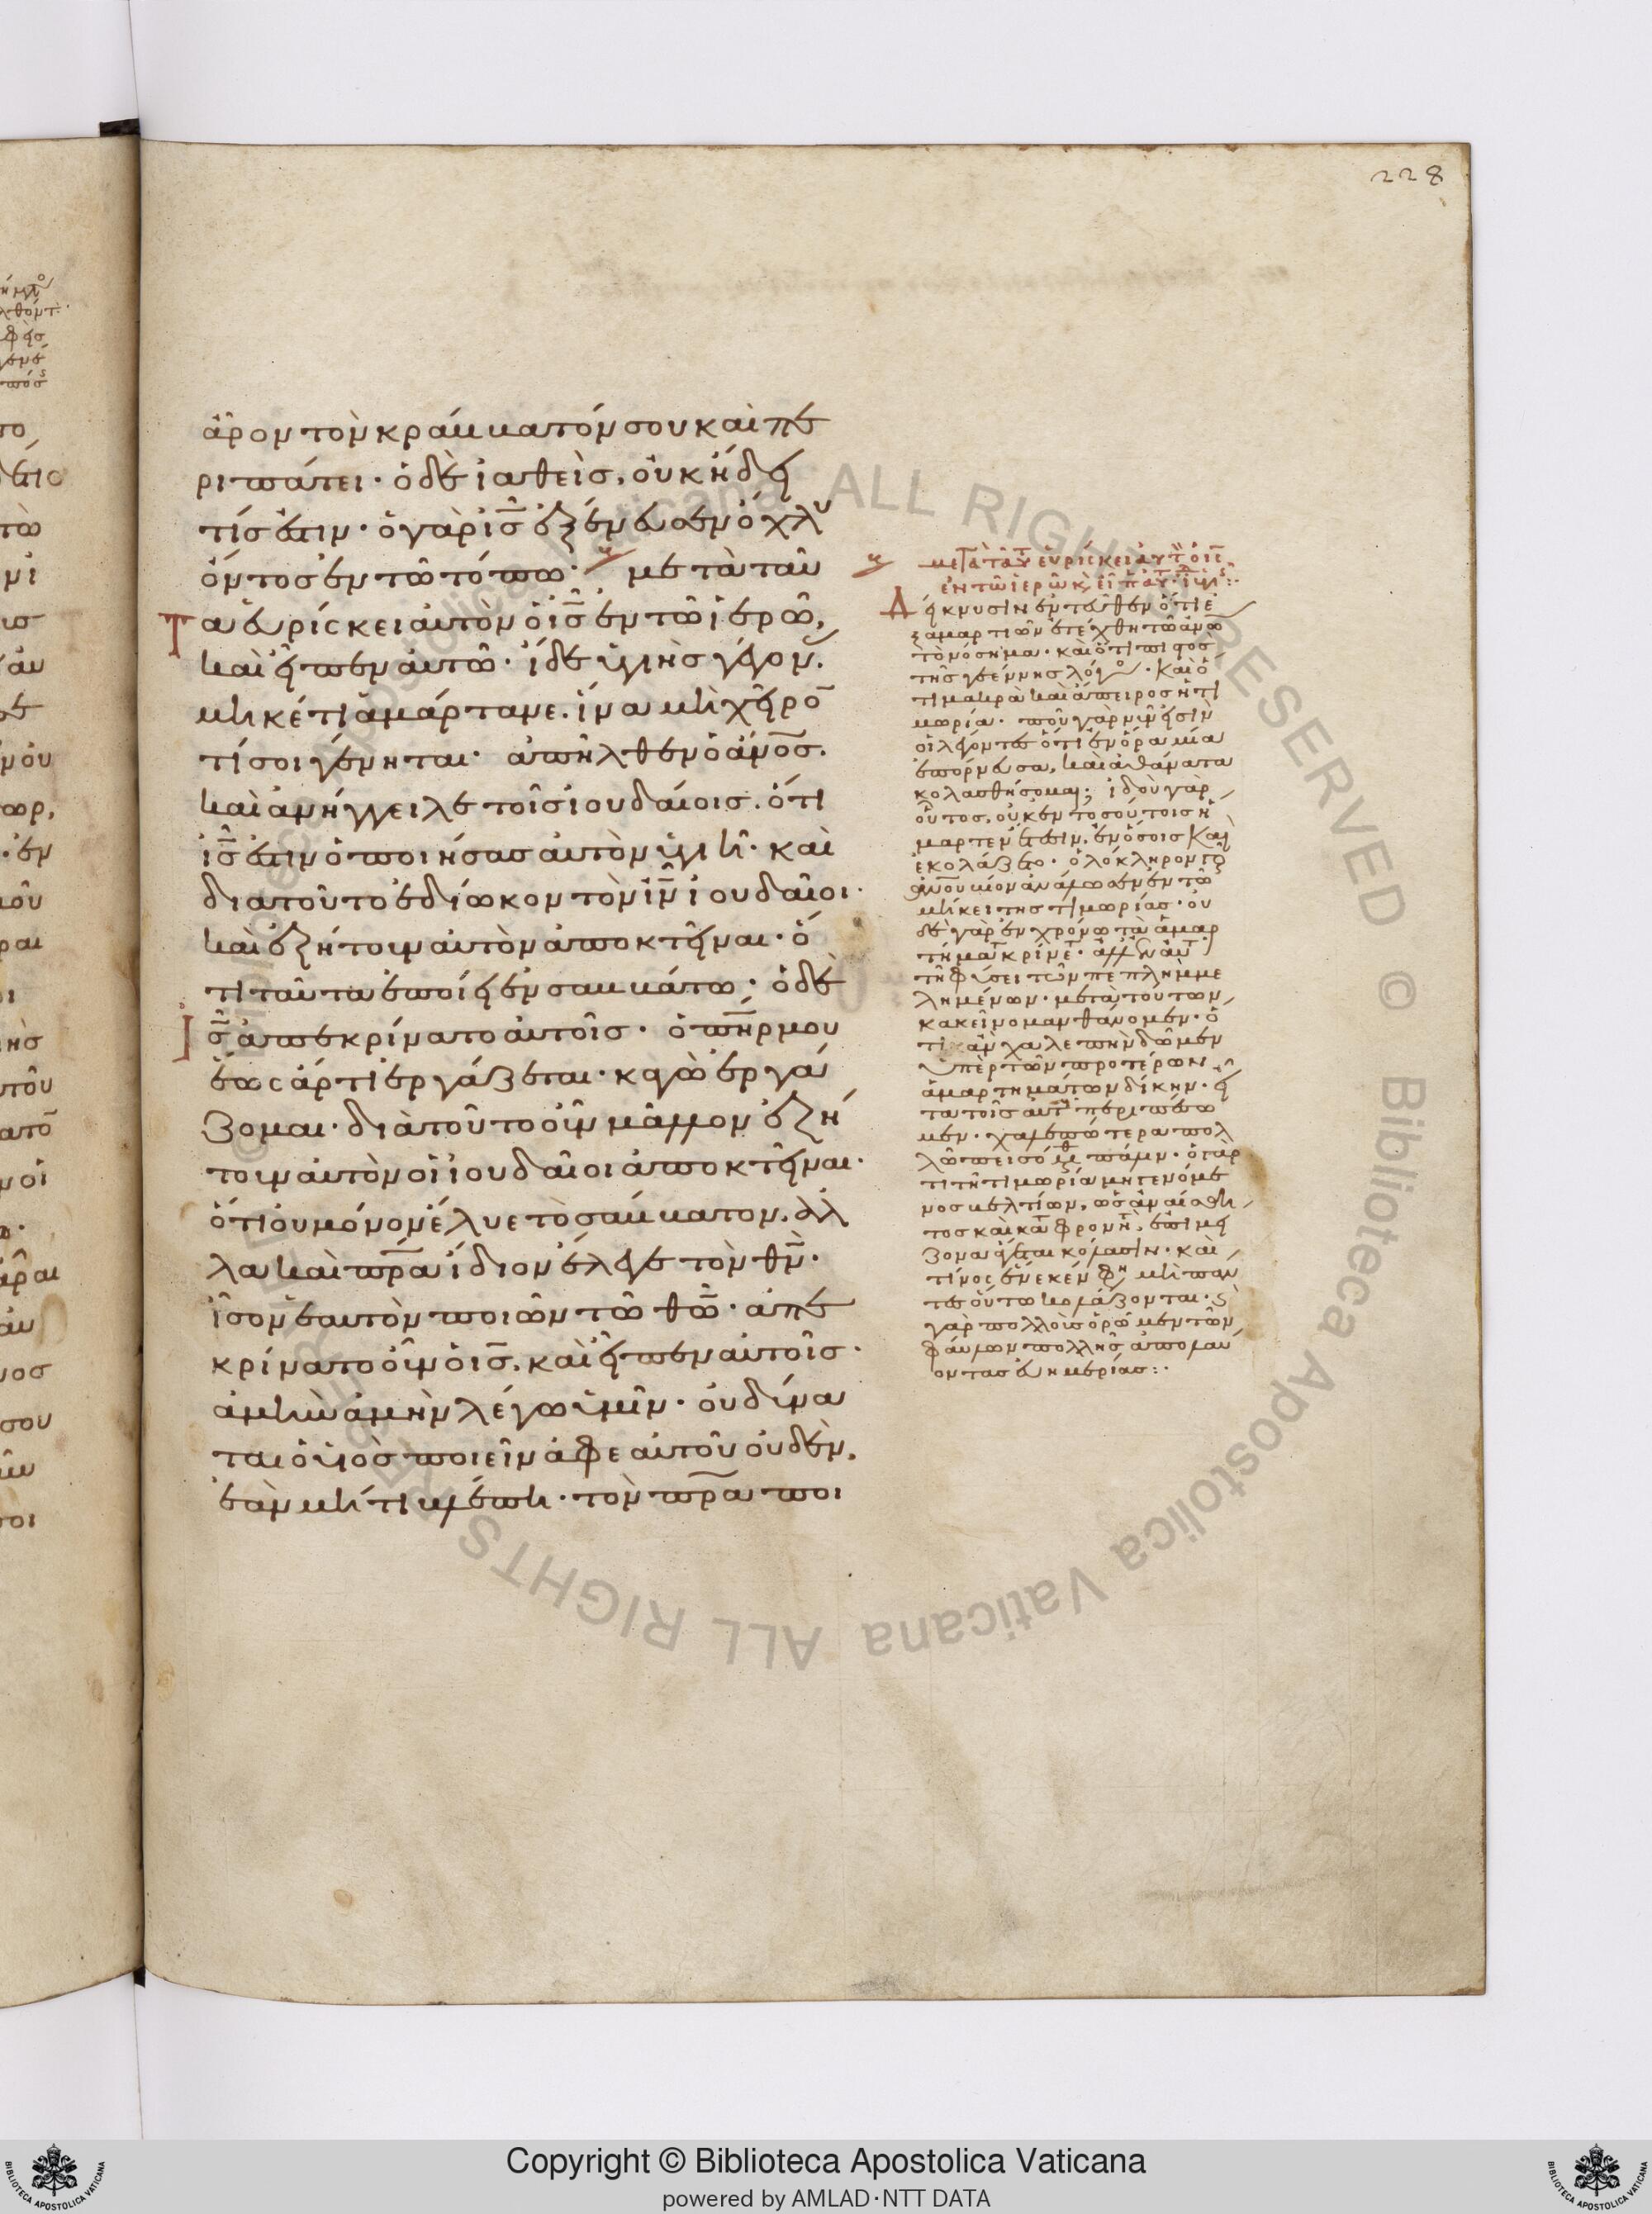 228
ἆρον τὸν κράμματόν σου καὶ πε
ριπάτει· ὁ δὲ ἰαθεὶσ, οὐκ ἤδει
τίσ ἐστιν· ὁ γὰρ ισ̅ ἐξένευσεν ὄχλου
ὄντοσ ἐν τῶ τόπω· μετὰ ταῦ
τα εὑρίσκει αὐτὸν ὁ ισ̅ ἐν τῶ ἱερῶ,
καὶ εἶπεν αὐτῶ· ἴδε ὑγιὴσ γέγονασ.
μηκέτι ἁμάρτανε. ἵνα μὴ χεῖρο̅
τί σοι γένηται· ἀπῆλθεν ὁ ἀν̅οσ.
καὶ ἀνήγγειλε τοῖσ ἰουδαίοισ. ὅτι
ισ̅ ἐστιν ὁ ποιήσασ αὐτὸν ὑγιῆ· καὶ
διατοῦτο ἐδίωκον τὸν ιν̅ ἰουδαῖοι·
καὶ ἐζήτουν αὐτὸν ἀποκτεῖναι· ὅ
τι ταῦτα ἐποίει ἐν σαμμάτω· ὁ δὲ
ισ̅ ἀπεκρίνατο αὐτοῖσ· ὁ πη̅ρ μου
ἕως ἄρτι ἐργάζεται· κἀγὼ ἐργά
ζομαι· διὰ τοῦτο οὖν μᾶλλον ἐζή
τουν αὐτὸν οἱ ἰουδαῖοι ἀποκτεῖναι·
ὅτι οὐ μόνον ἔλυε τὸ σάμματον. ἀλ
λα καὶ πρ̅α ἴδιον ἔλεγε τὸν θν̅·
ἶσον ἑαυτὸν ποιῶν τῶ θω̅· ἀπε
κρίνατο οὖν ὁ ισ̅. καὶ εἶπεν αὐτοῖσ·
ἀμὴν ἀμὴν λέγω ὑμῖν· οὐ δύνα
ται ὁ υἱὸσ ποιεῖν ἀφ' ἑαυτοῦ οὐδέν.
ἐὰν μή τι βλέπη· τὸν πρ̅α ποι
μετὰ ταῦτ εὑρίσκει αὐτὸν ὁ ισ̅
ἐν τῶ ἱερῶ κ εἶπ αὐτ
Δείκνυσιν ἐντεῦθεν ὅτι ἐ
ξ ἁμαρτιῶν ἐτέχθη τῶ ἀν̅ω
τὸ νόσημα· καὶ ὅτι πιστὸσ
τῆσ γεέννησ λόγοσ· καὶ ὅ
τι μακρὰ καὶ ἄπειροσ ἡ τι
μωρία· ποῦ γὰρ νῦν εἰσὶν
οἱ λέγοντεσ ὅτι ἐν ὥρα μία
ἐπόρνευσα, καὶ ἀθάνατα
κολασθήσομαι; ἰδοὺ γὰρ
οὗτοσ, οὐκ ἐν τοσούτοισ ἥ
μαρτεν ἔτεσιν, ἐν ὅσοισ καὶ
ἐκολάζετο· ὁλόκληρον
ἀν̅ου βίον ἀνάλωσεν ἐν τῶ
μήκει τῆσ τιμωρίασ· οὐ
δὲ γὰρ ἐν χρόνω τὰ ἁμαρ
τήματ κρίνετ· ἀλλ' ἐν αὐτ
τῆ φύσει τῶν πεπλημμε
λημένων· μετὰ τούτων
κἀκεῖνο μανθάνομεν· ὅ
τι κἂν χαλεπὴν δῶμεν
ὑπὲρ τῶν προτέρων
ἁμαρτημάτων δίκην· εἶ
τα τοῖσ αὐτ περιπέσω
μεν· χαλεπώτερα πολ
λῶ πεισόμεθ πάλιν· ὁ γὰρ
τι τῆ τιμωρία μὴ γενόμε
νοσ βελτίων, ὡσ ἀναίσθη
τοσ καὶ καταφρονητ, ἐπὶ μεί
ζονα ἄγεται κόλασιν· καὶ
τίνος ἕνεκεν φη μὴ παν
τεσ οὕτω κολάζονται·
γὰρ πολλοὺσ ὁρῶμεν τῶν
φαύλων πολλῆσ ἀπολαύ
οντασ εὐημερίασ:·
Copyright © Biblioteca Apostolica Vaticana
powered by AMLAD·NTT DATA